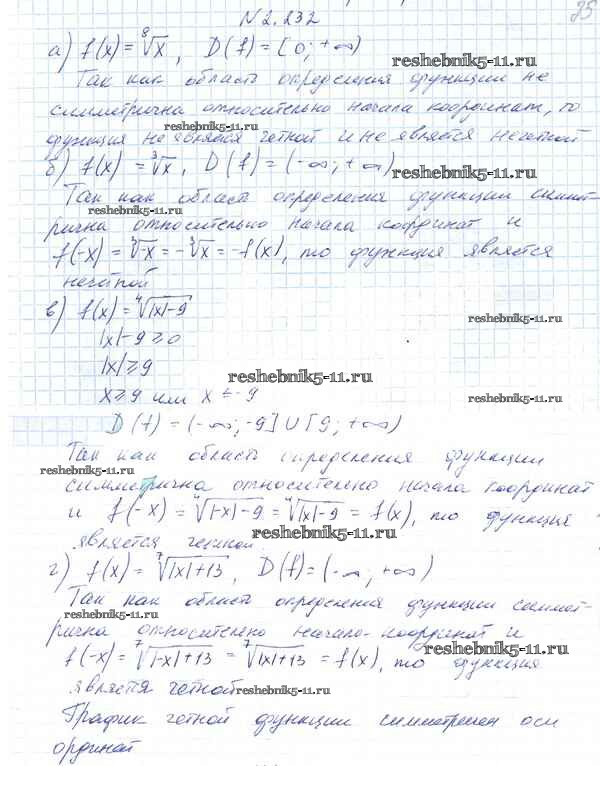 №2.232
35
а) f(x) = ⁸√x, D(f) = [0; +∞)
reshebnik5-11.ru
Так как область определения функции не
симметрична относительно начала координат, то
reshebnik5-11.ru
функция не является четной и не является нечетной
б) f(x) = ³√x, D(f) = (-∞; +∞)
reshebnik5-11.ru
Так как область определения функции симмет-
reshebnik5-11.ru
рична относительно начала координат и
f(-x) = ³√-x = -³√x = -f(x), то функция является
нечетной
в) f(x) = ⁴√|x|-9
reshebnik5-11.ru
|x|-9 ≥ 0
|x| ≥ 9
reshebnik5-11.ru
x ≥ 9 или x ≤ -9
reshebnik5-11.ru
D(f) = (-∞; -9] ∪ [9; +∞)
Так как область определения функции
reshebnik5-11.ru
симметрична относительно начала координат
и f(-x) = ⁴√|-x|-9 = ⁴√|x|-9 = f(x), то функция
reshebnik5-11.ru
является четной.
г) f(x) = ⁷√|x|+13, D(f) = (-∞; +∞)
Так как область определения функции симмет-
reshebnik5-11.ru
рична относительно начала координат и
f(-x) = ⁷√|-x|+13 = ⁷√|x|+13 = f(x), то функция
reshebnik5-11.ru
является четной
reshebnik5-11.ru
График четной функции симметричен оси
ординат